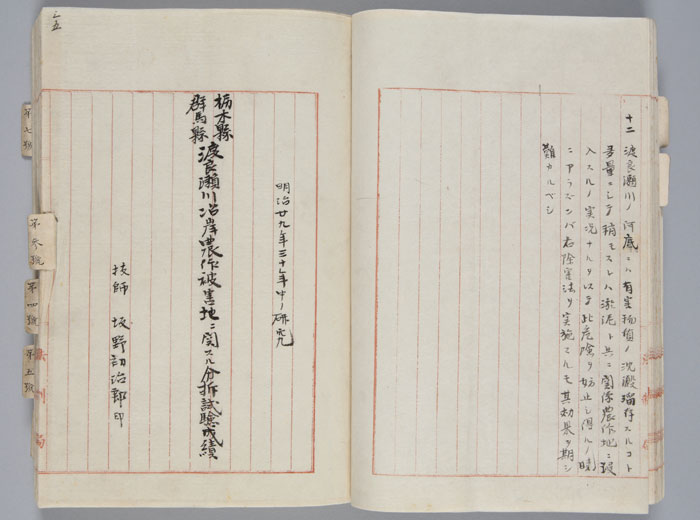 十二 渡良瀬川ノ河底ニハ有害物質ノ沈澱瑠存スルコト
多量ニシテ稍モスレハ淤泥ト共ニ関係農作地ニ
入スルノ実況ナルヲ以テ此危険ヲ防止シ得ルノ暁
ニアラズンバ右除害法ヲ実施スルモ其効果ヲ期シ
難カルベシ
明治廿九年三十年中ノ研究
栃木縣
群馬縣
渡良瀬川沿岸農作被害地ニ関スル分析試験成績
技師 坂野初治郎 印
五
第七號
第参號
第四號
第五號